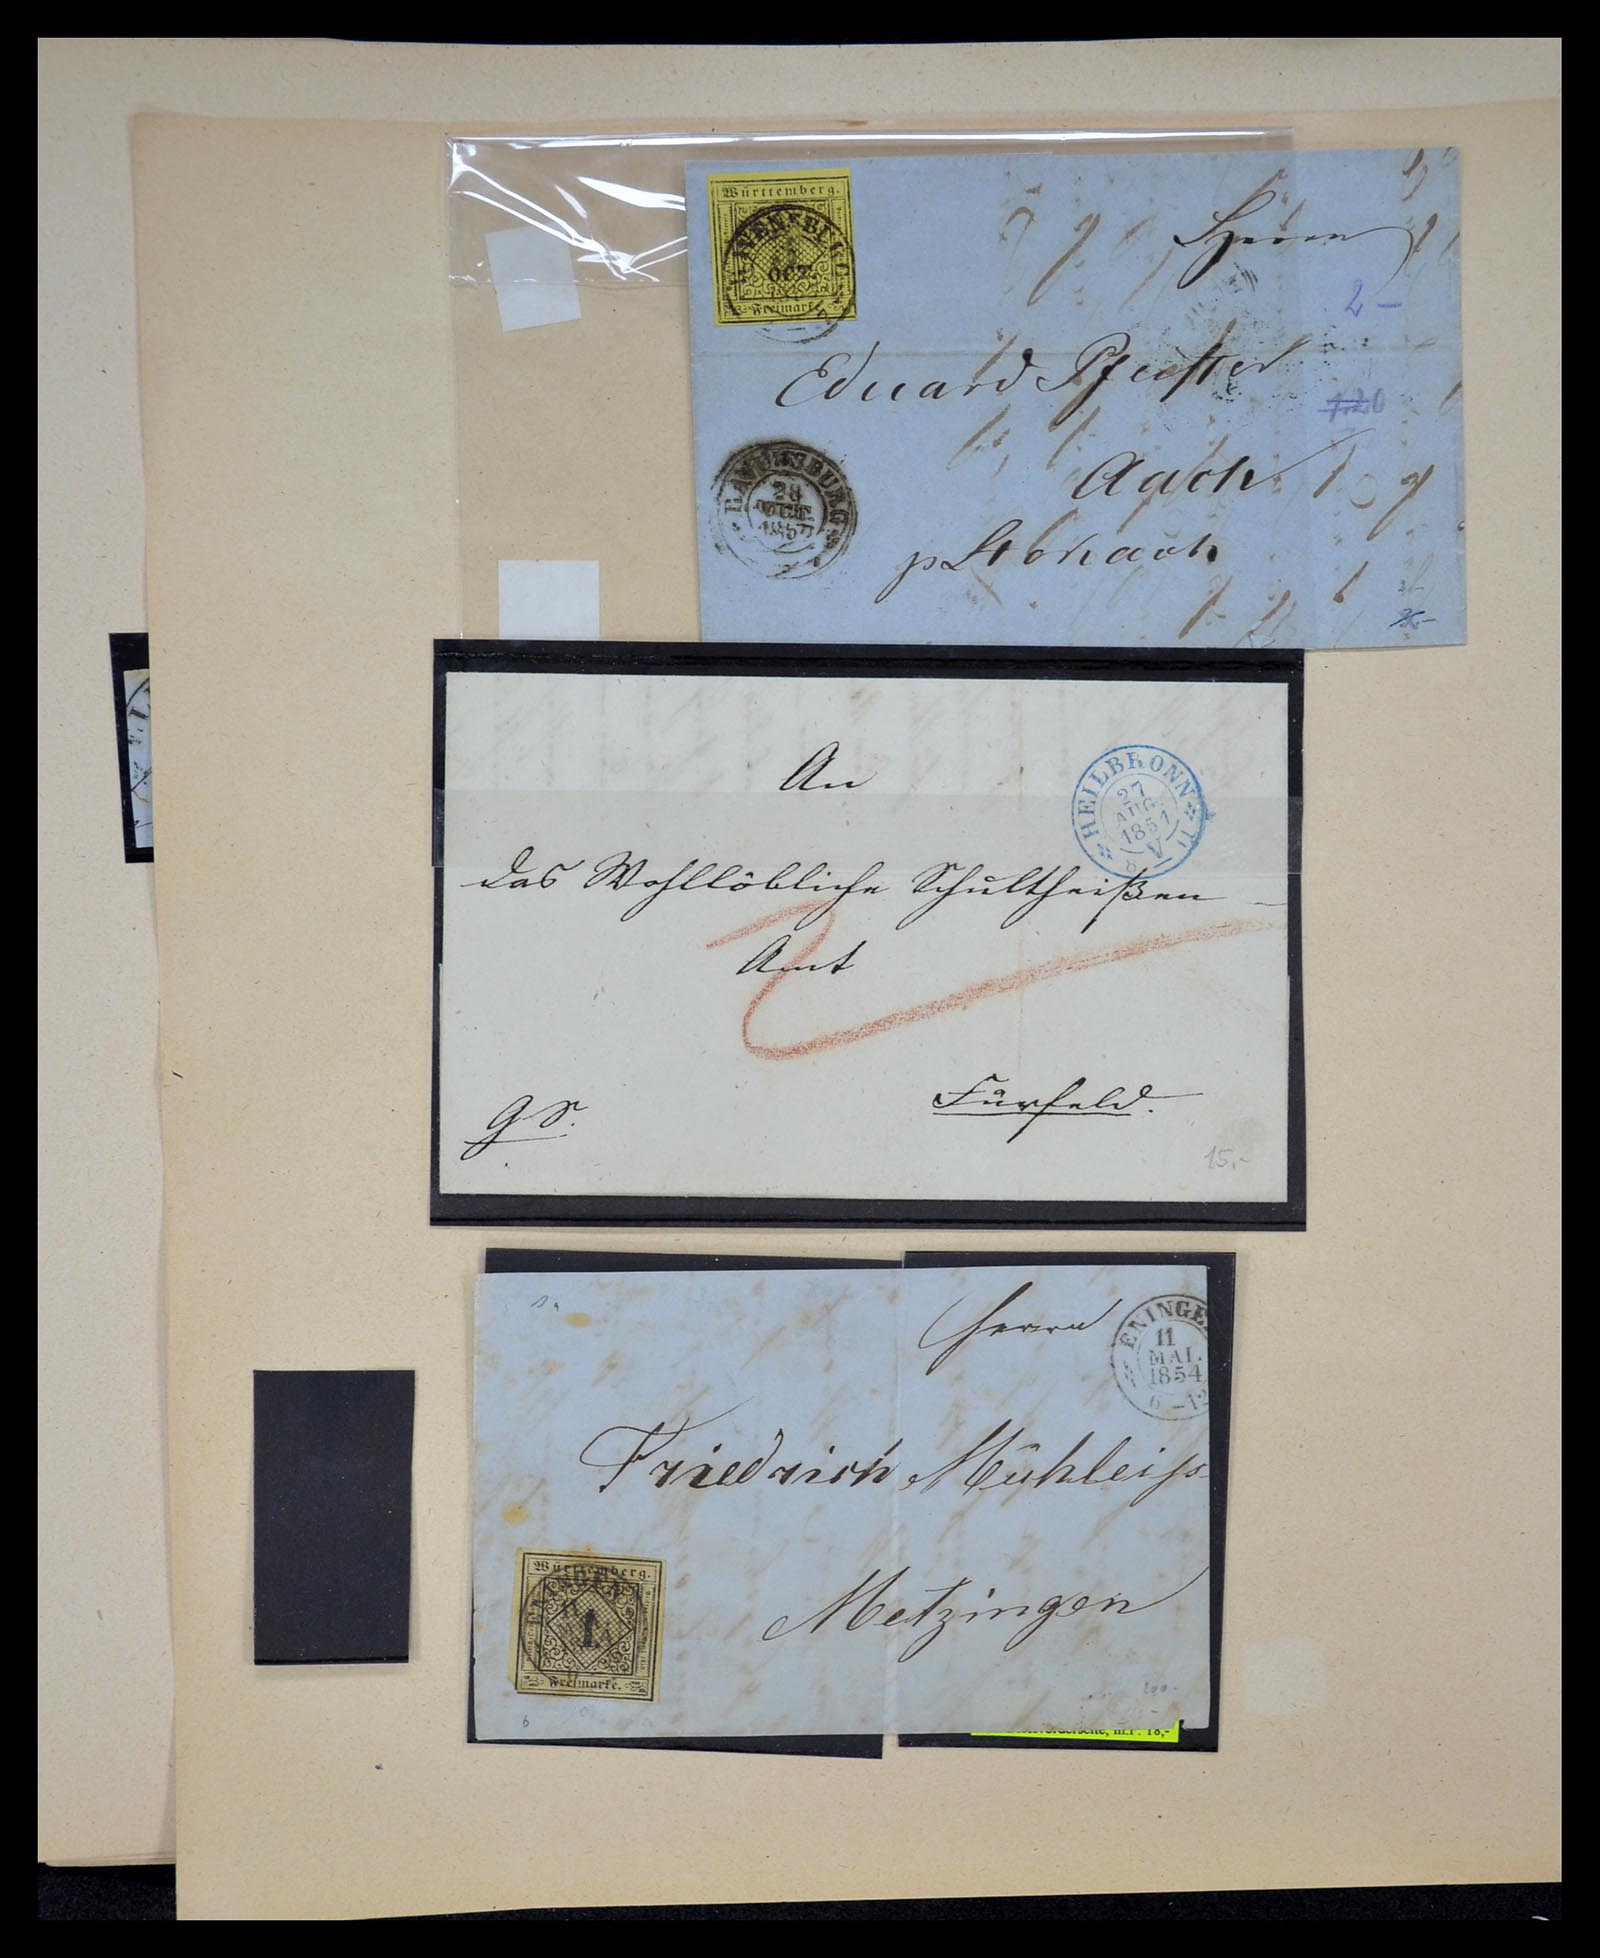 Württemberg.
OCT
Freimarke
Herrn
2 —
Eduard Pfeiffer
1.20
RAVENSBURG
28
OCT.
1857
Aach
p Stokach
An
HEILBRONN
27
AUG.
1851
8 V
das Wohllöbliche Schultheißen-
Amt
2
Fürfeld.
15,-
Herrn
ENINGE
11
MAI.
1854
6 – 12
Friedrich Mühleiss
Metzingen
Württemberg.
ENINGEN
1
Freimarke.
200.-
18,-